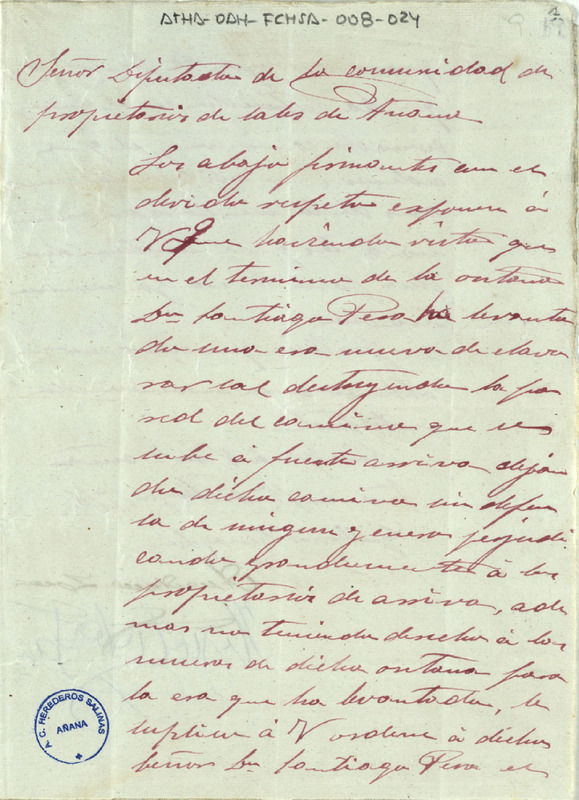 ATHA-DAH-FCHSA-008-024
1
Señor Diputado de La comunidad de
propietarios de sales de Añana
Los abajo firmantes con el
devido respeto exponen á
V que haviendo visto que
en el termino de la ontana
Dn Santiago Pesa ha levanta
do una era nueva de elavo
rar sal destuyendo la pa
red del camino que se
sube á fuente arriva dejan
do dicho camino sin defen
sa de ningun genero perjudi
cando grandemente á los
propietarios de arriva, ade
mas no teniendo derecho á los
muros de dicha ontana para
la era que ha levantado, le
suplico á V ordene á dicho
Señor Dn Santiago Pesa el
A C. HEREDEROS SALINAS
AÑANA